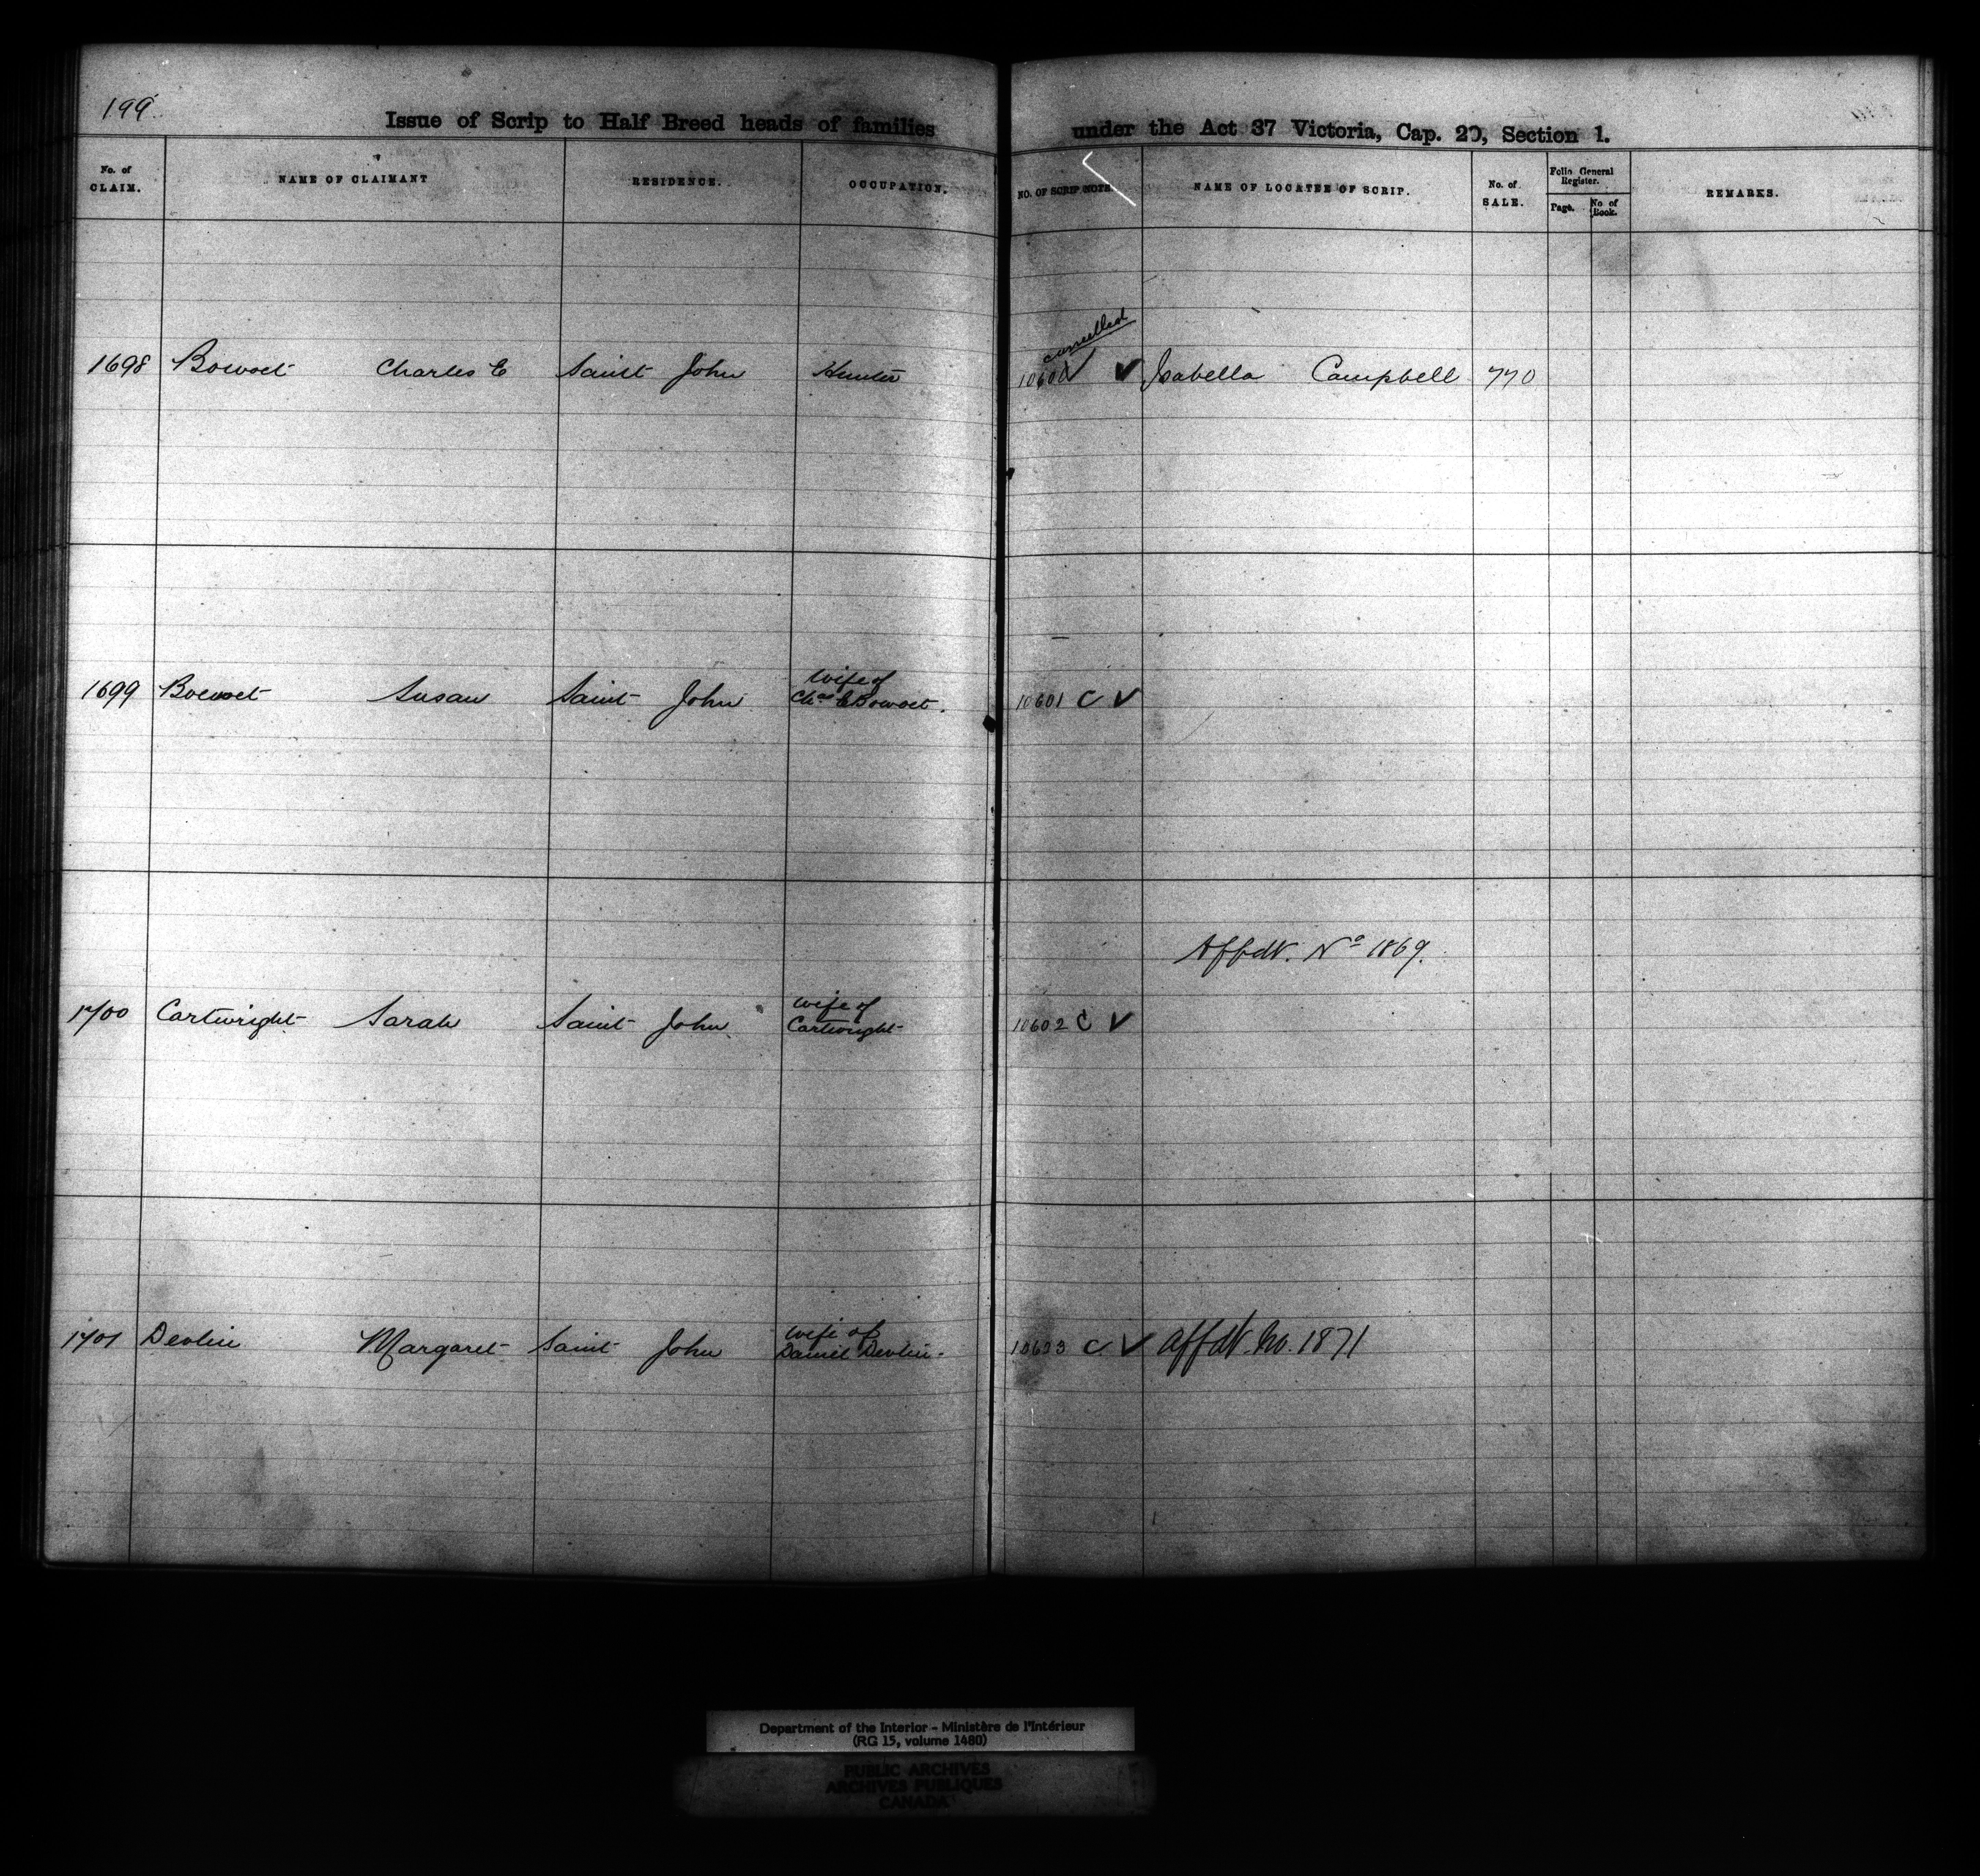 199.
Issue of Scrip to Half Breed heads of families under the Act 37 Victoria, Cap. 20, Section 1.
No. of CLAIM. NAME OF CLAIMANT RESIDENCE. OCCUPATION. NO. OF SCRIP NOTE. NAME OF LOCATEE OF SCRIP. No. of SALE. Folio General Register. Page. No of Book. REMARKS.
cancelled
1698 Bowoet Charles E Saint John Hunter 10600 Isabella Campbell 770
wife of
1699 Bowoet Susan Saint John Chas E Bowoet. 10601 C
Affdt. No 1869.
wife of
1700 Cartwright Sarah Saint John Cartwright 10602 C
wife of
1701 Devlin Margaret Saint John Daniel Devlin 10603 C Affdt. No. 1871
Department of the Interior - Ministère de l'Intérieur
(RG 15, volume 1480)
PUBLIC ARCHIVES
ARCHIVES PUBLIQUES
CANADA